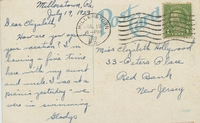 Millerstown, Pa.
July 19, 1939
Dear Elizabeth,
How are you
your vacation? I am
having a fine time
here with my aunt
and uncle. I was at a
movie yesterday "we
were in swimming.
Gladys
Post Card
Miss Elizabeth Hollywood
33 Peters Place
Red Bank
New Jersey